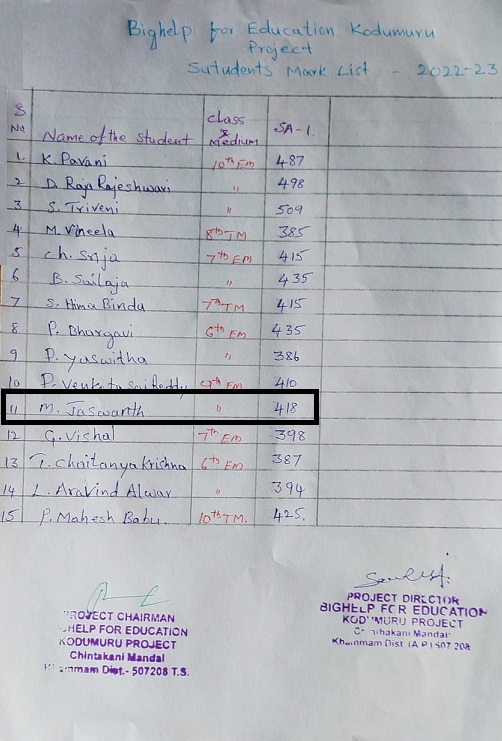 Bighelp for Education Kodumuru
Project
Sutudents Mark List - 2022-23
S No Name of the student class & Medium SA-1.
1. K Pavani 10th EM 487
2 D. Raja Rajeshwari " 498
3 S. Triveni " 509
4 M. Vineela 8th TM 385
5 Ch. Srija 7th EM 415
6 B. Sailaja " 435
7 S. Hima Bindu 7th TM 415
8 P. Bhargavi 6th EM 435
9 P. Yaswitha " 386
10 P. Venkata Sai Reddy 9th EM 410
11 M. Jaswanth " 418
12 G. Vishal 7th EM 398
13 T. Chaitanya Krishna 6th EM 387
14 L. Aravind Alwar " 394
15 P. Mahesh Babu. 10th TM. 425.
PROJECT CHAIRMAN
HELP FOR EDUCATION
KODUMURU PROJECT
Chintakani Mandal
Dist.- 507208 T.S.
PROJECT DIRECTOR
BIGHELP FOR EDUCATION
KODUMURU PROJECT
Chintakani Mandal
Khammam Dist (A P) 507 208